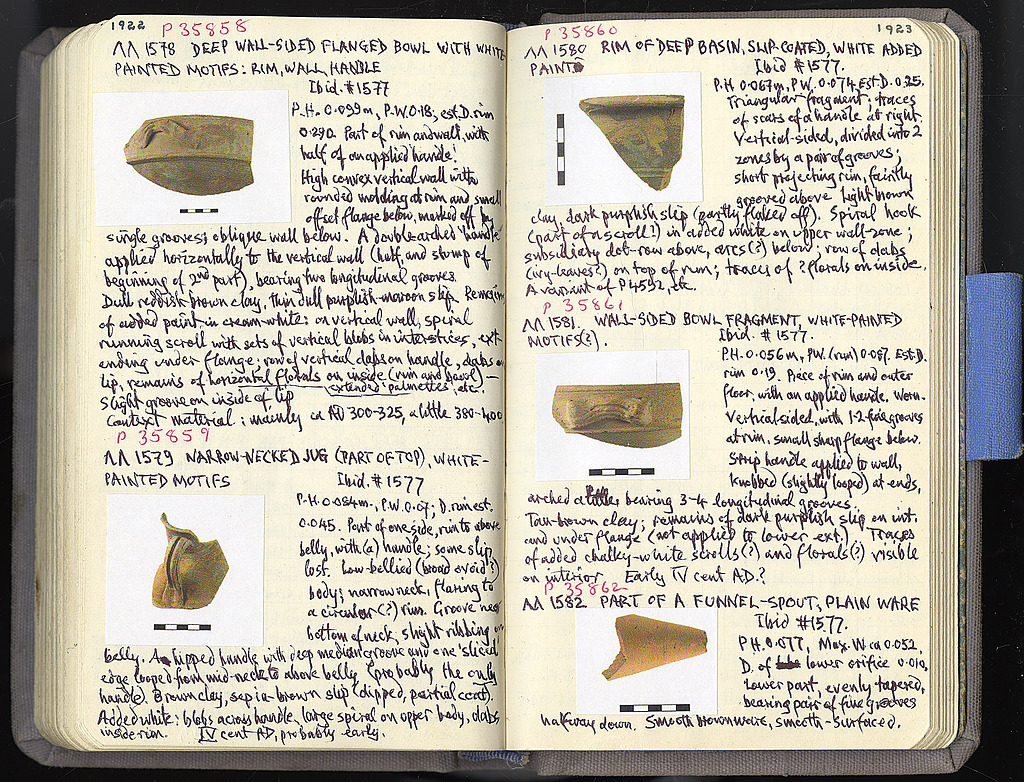 1922 P 35858
ΛΛ 1578 DEEP WALL-SIDED FLANGED BOWL WITH WHITE
PAINTED MOTIFS: RIM, WALL, HANDLE
Ibid. #1577
P.H. 0.099m, P.W. 0.18, est. D. rim
0.290. Part of rim and wall, with
half of an applied 'handle'.
High convex vertical wall with
rounded molding at rim and small
offset flange below, marked off by
single grooves; oblique wall below. A double-arched 'handle'
applied horizontally to the vertical wall (half, and stump of
beginning of 2nd part), bearing two longitudinal grooves.
Dull reddish-brown clay, thin dull purplish-maroon slip. Remains
of added paint in cream-white: on vertical wall, spiral
running scroll with sets of vertical blobs in interstices, ext-
ending under flange; row of vertical dabs on handle, dabs on
lip, remains of horizontal florals on inside (rim and basal) —
extended 'palmettes', etc.
Slight groove on inside of lip
Context material: mainly ca AD 300-325, a little 380-400
P 35859
ΛΛ 1579 NARROW-NECKED JUG (PART OF TOP), WHITE-
PAINTED MOTIFS
Ibid. #1577
P.H. 0.084m, P.W. 0.07; D. rim est.
0.045. Part of one side, rim to above
belly, with (a) handle; some slip
lost. Low-bellied (broad ovoid?)
body; narrow neck, flaring to
a circular (?) rim. Groove near
bottom of neck, slight ribbing on
belly. A lipped handle with deep median groove and one 'sliced'
edge looped from mid-neck to above belly (probably the only
handle). Brown clay, sepia-brown slip (dipped, partial coat).
Added white: blobs across handle, large spiral on upper body, dabs
inside rim. IV cent AD, probably early.
P 35860 1923
ΛΛ 1580 RIM OF DEEP BASIN, SLIP-COATED, WHITE ADDED
PAINT
Ibid #1577.
P.H. 0.067m, P.W. 0.074, Est. D. 0.25.
Triangular fragment; traces
of scars of a handle at right.
Vertical-sided, divided into 2
zones by a pair of grooves;
short projecting rim, faintly
grooved above. Light brown
clay, dark purplish slip (partly flaked off). Spiral hook
(part of a scroll?) in added white on upper wall-zone;
subsidiary dot-row above, arcs(?) below; row of dabs
(ivy-leaves?) on top of rim; traces of ?florals on inside.
A variant of P4592, etc.
P 35861
ΛΛ 1581. WALL-SIDED BOWL FRAGMENT, WHITE-PAINTED
MOTIFS(?).
Ibid. #1577.
P.H. 0.056m, P.W. (rim) 0.087. Est. D.
rim 0.19. Piece of rim and outer
floor, with an applied handle. Worn.
Vertical-sided, with 1-2 fine grooves
at rim, small sharp flange below.
Strap handle applied to wall,
knobbed (slightly looped) at ends,
arched bearing 3-4 longitudinal grooves.
Tan-brown clay; remains of dark purplish slip on int.
and under flange (not applied to lower ext.). Traces
of added chalky-white scrolls(?) and florals(?) visible
on interior. Early IV cent AD.?
P 35862
ΛΛ 1582 PART OF A FUNNEL-SPOUT, PLAIN WARE
Ibid #1577.
P.H. 0.077, Max. W. ca 0.052,
D. of lower orifice 0.010.
Lower part, evenly tapered,
bearing pair of fine grooves
halfway down. Smooth brown ware, smooth-surfaced.